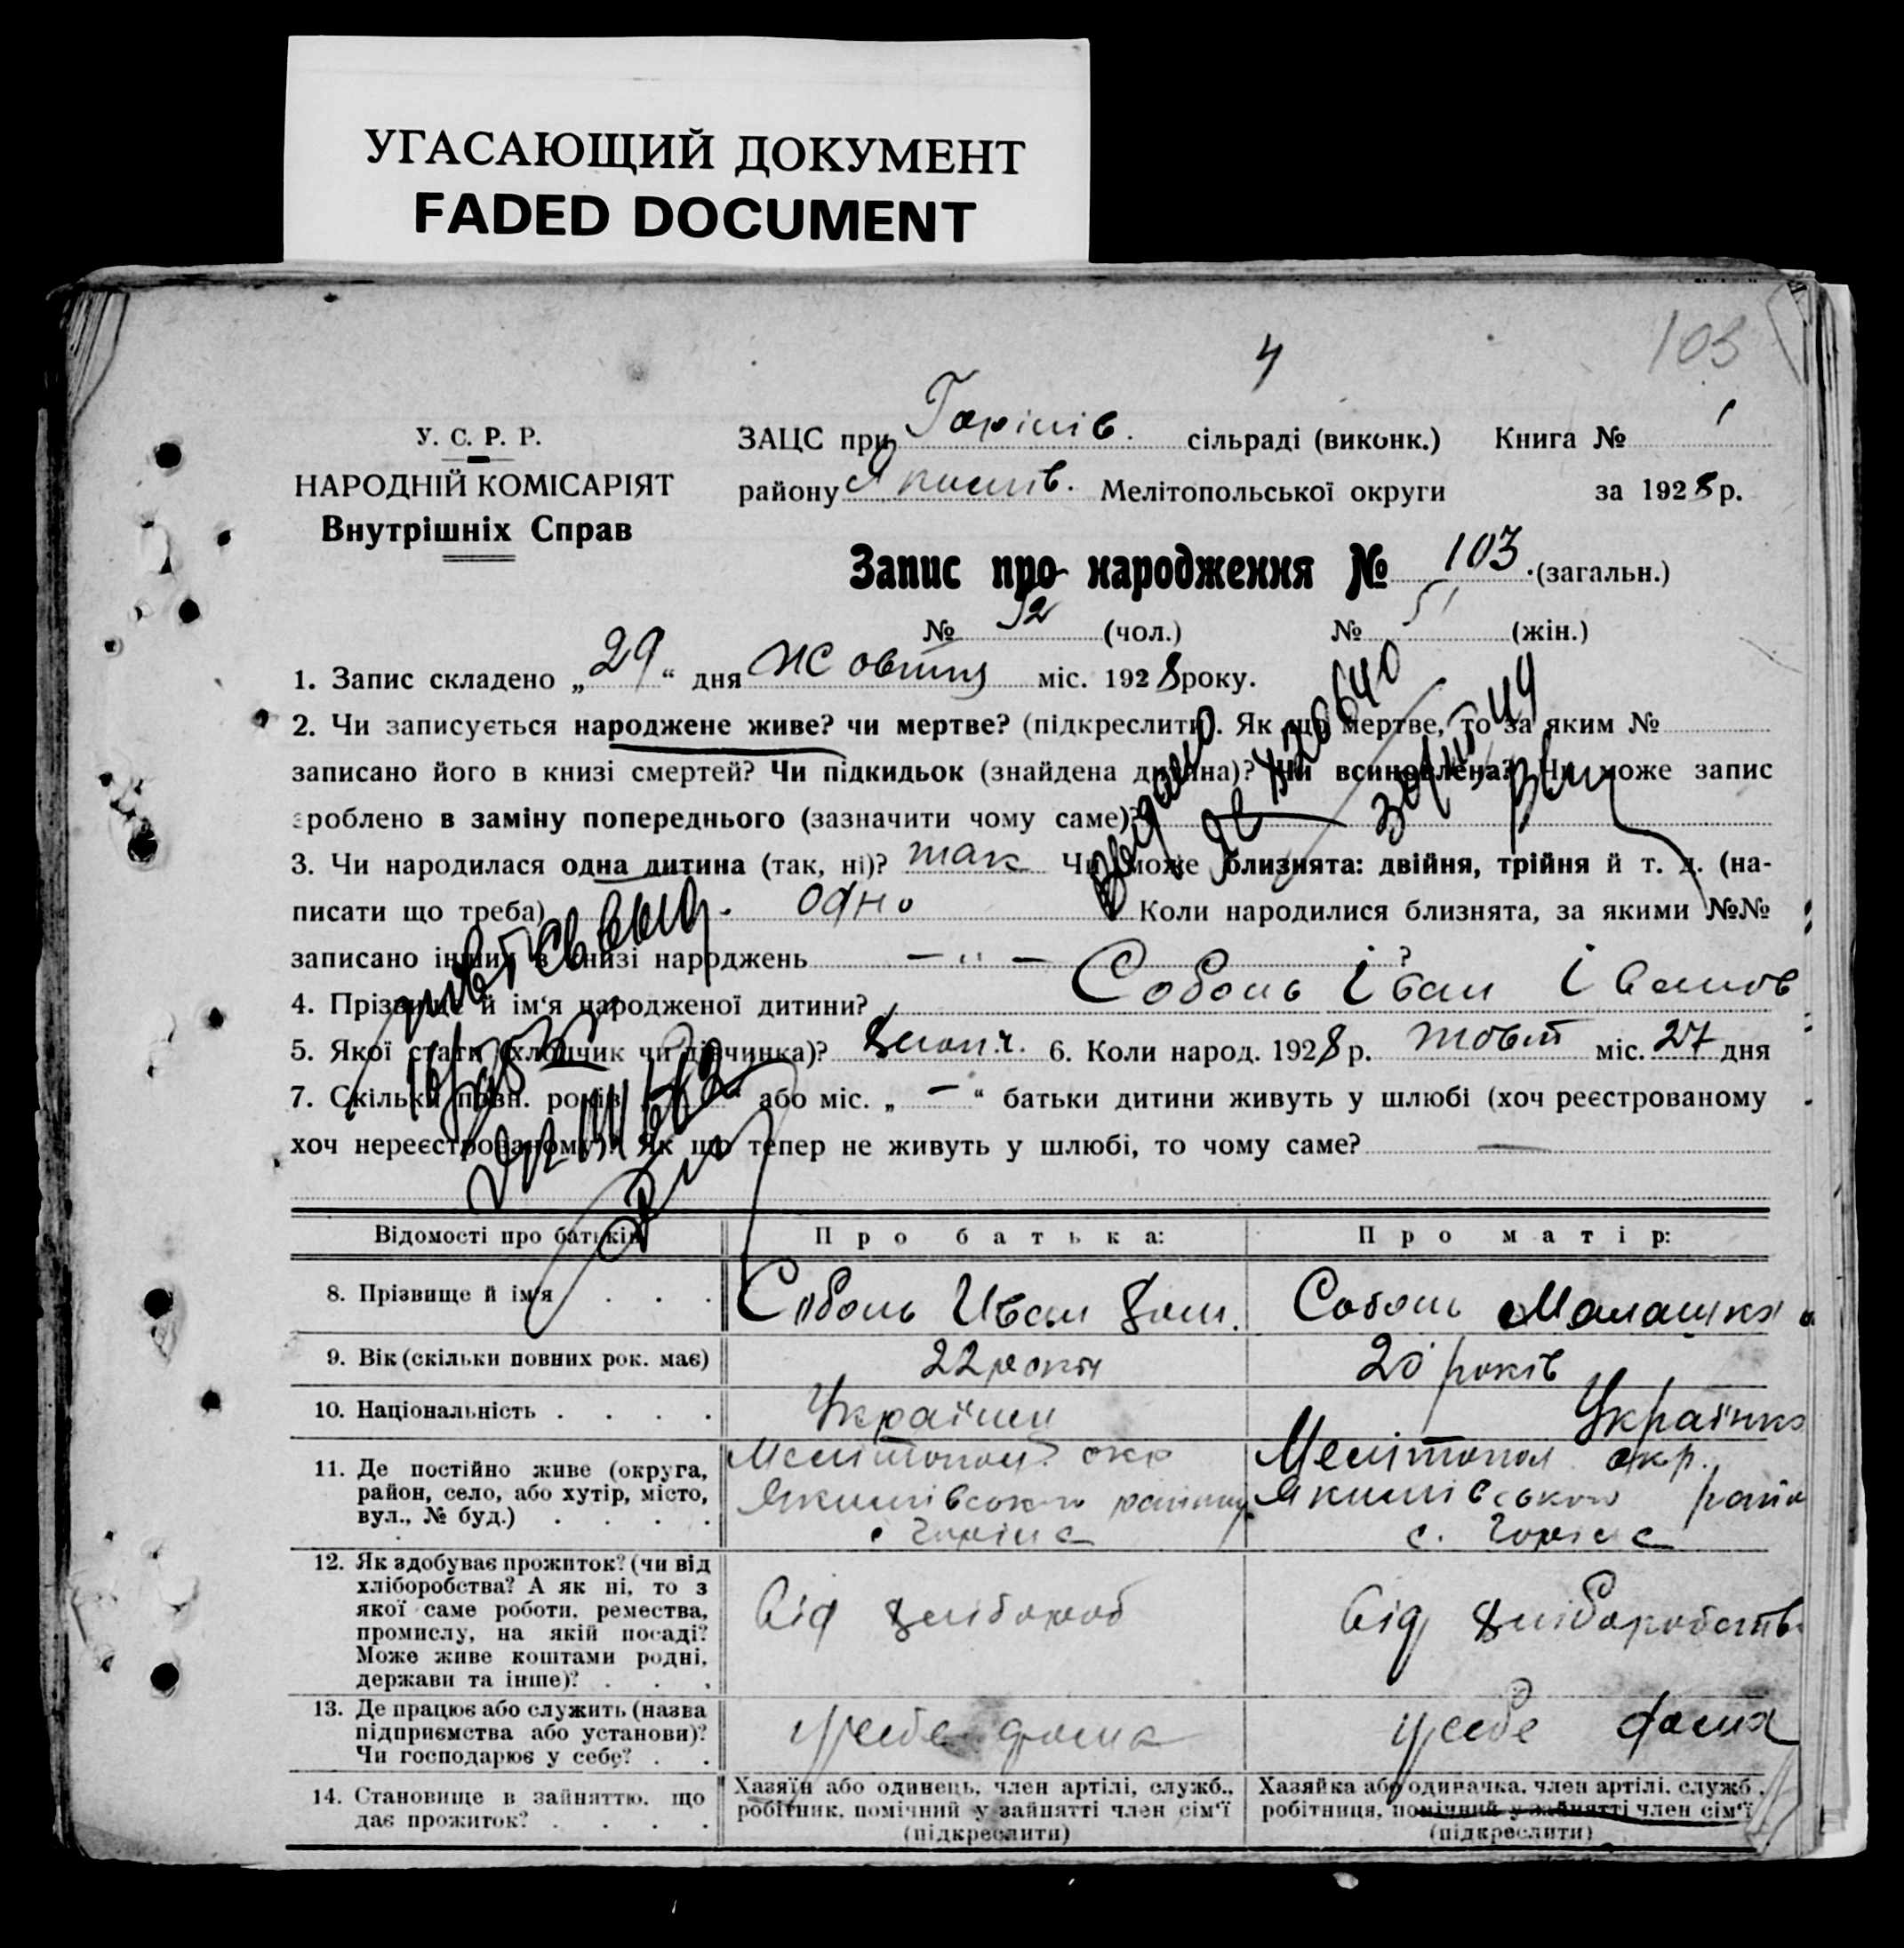 УГАСАЮЩИЙ ДОКУМЕНТ
FADED DOCUMENT
4
103
У. С. Р. Р.
НАРОДНІЙ КОМІСАРІЯТ
Внутрішніх Справ
ЗАЦС при Горінів. сільраді (виконк.) Книга № 1
району Якимів. Мелітопольської округи за 1928 р.
Запис про народження № 103 (загальн.)
№ 52 (чол.) № 51 (жін.)
1. Запис складено „29“ дня Жовтня міс. 1928 року.
2. Чи записується народжене живе? чи мертве? (підкреслити). Як що мертве, то за яким №
записано його в книзі смертей? Чи підкидьок (знайдена дитина)? Чи всиновлена? Чи може запис
зроблено в заміну попереднього (зазначити чому саме)?
3. Чи народилася одна дитина (так, ні)? так Чи може близнята: двійня, трійня й т. д. (на-
писати що треба) одно Коли народилися близнята, за якими №№
записано інших в книзі народжень — „ — ?
4. Прізвище й ім‘я народженої дитини? Соболь Іван Іванов
5. Якої стати (хлопчик чи дівчинка)? хлопч. 6. Коли народ. 1928 р. жовт міс. 27 дня
7. Скільки повн. років або міс. „ — “ батьки дитини живуть у шлюбі (хоч реєстрованому
хоч нереєстрованому)? Як що тепер не живуть у шлюбі, то чому саме? —
Відомості про батьків Про батька: Про матір:
8. Прізвище й ім‘я . . . Соболь Иван Соболь Малашка
9. Вік (скільки повних рок. має) 22 роки 20 років
10. Національність . . . . Українец Українка
11. Де постійно живе (округа, район, село, або хутір, місто, вул., № буд.) . . . .
Мелітопол. окр
Якимівського району
с.
Мелітопол окр.
Якимівського райо
с.
12. Як здобуває прожиток? (чи від хліборобства? А як ні, то з якої саме роботи, ремества, промислу, на якій посаді? Може живе коштами родні, держави та інше)? . . .
від хлібороб
від хліборобств
13. Де працює або служить (назва підприємства або установи)? Чи господарює у себе? . .
у себе дома
у себе дома
14. Становище в зайняттю, що дає прожиток? . . . .
Хазяїн або одинець, член артілі, служб., робітник, помічний у зайнятті член сім‘ї (підкреслити)
Хазяйка або одиначка, член артілі, служб., робітниця, помічний у зайнятті член сім‘ї (підкреслити)